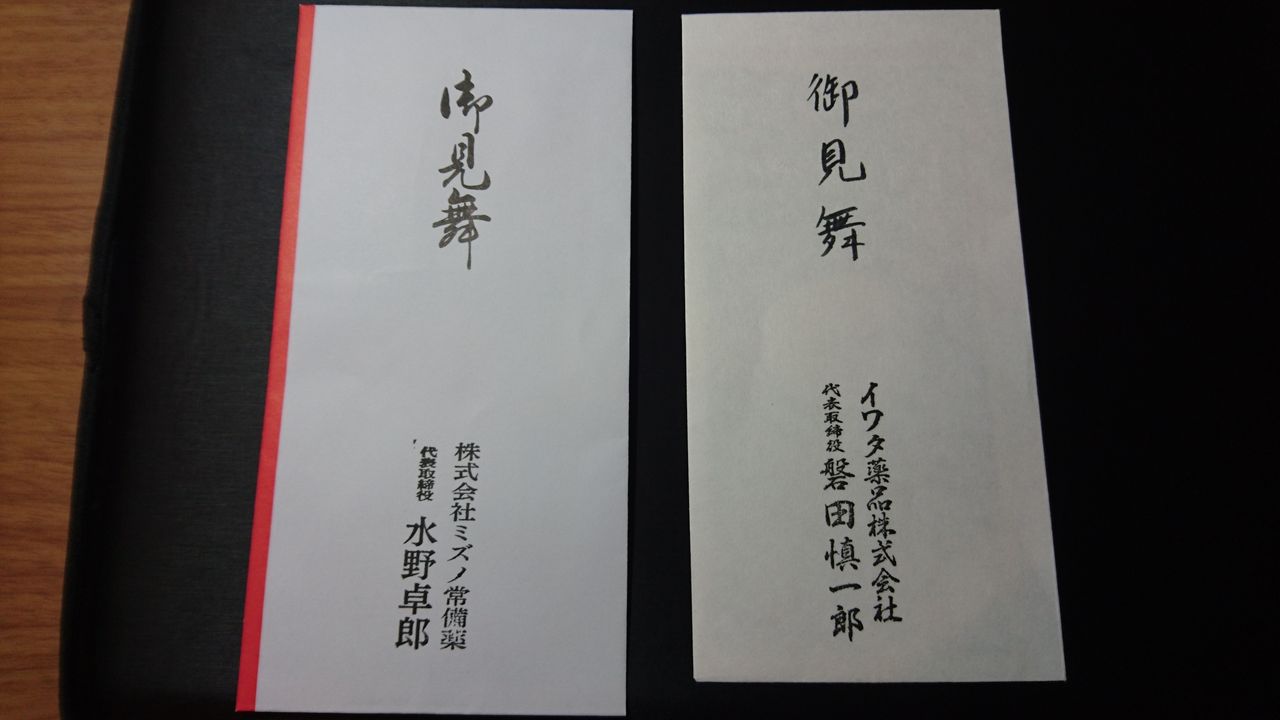 御見舞
株式会社ミズノ常備薬
代表取締役 水野卓郎
御見舞
イワタ薬品株式会社
代表取締役 磐田慎一郎